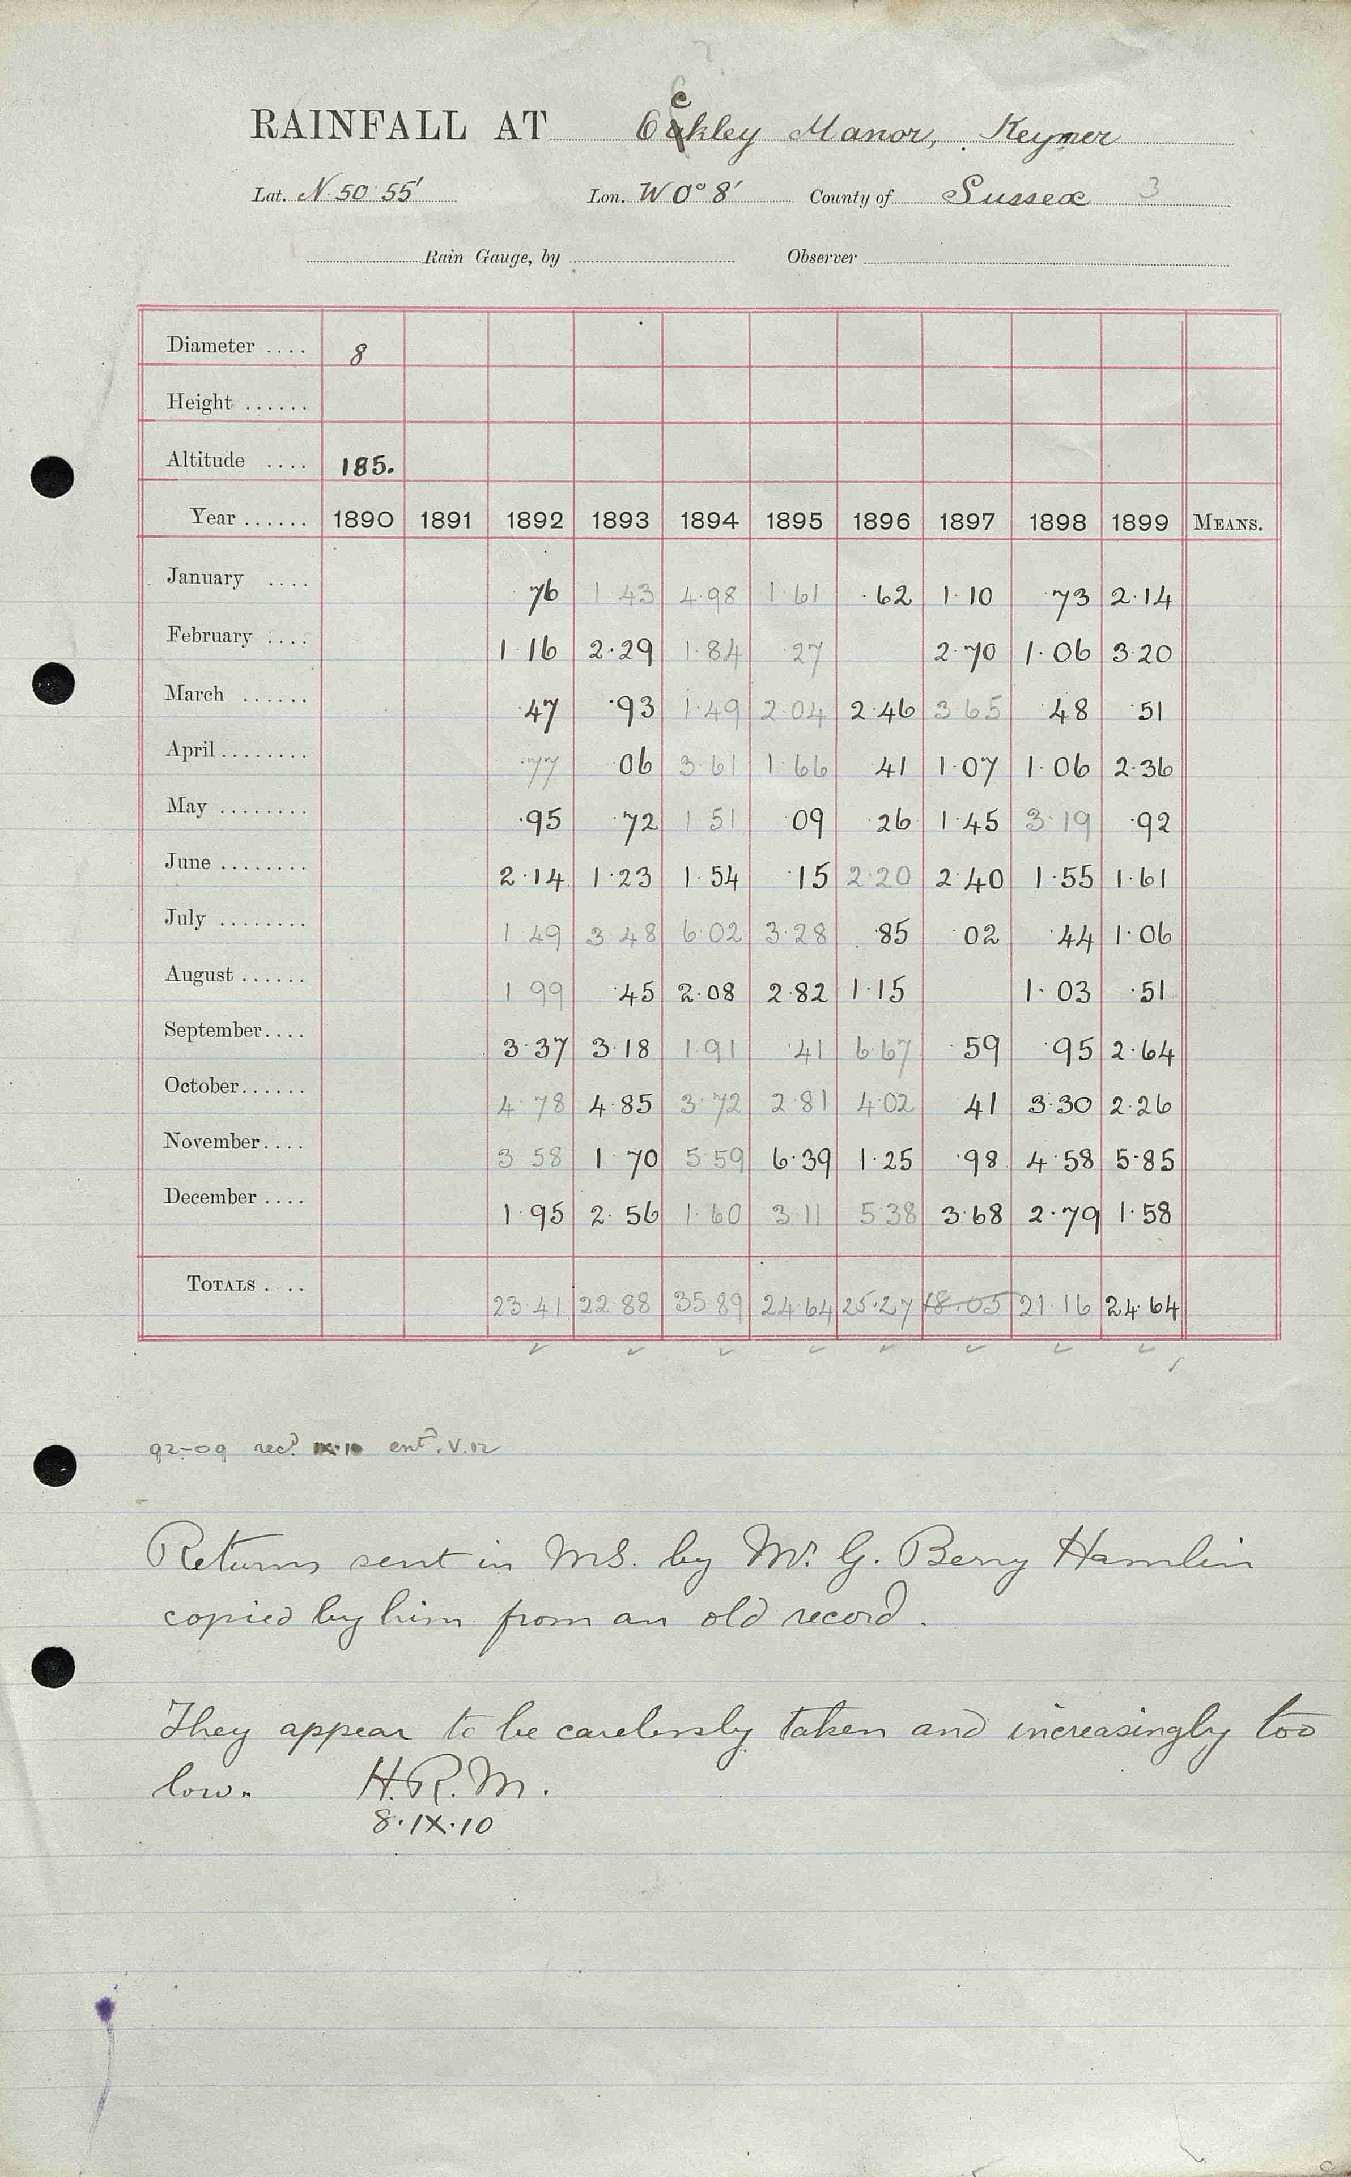 RAINFALL AT Ockley Manor, Keymer
Lat. N 50 55' Lon. W 0° 8' County of Sussex 3
Rain Gauge, by Observer
Diameter .... 8
Height ......
Altitude .... 185.
Year ...... 1890 1891 1892 1893 1894 1895 1896 1897 1898 1899 MEANS.
January .... ·76 1·43 4·98 1·61 ·62 1·10 ·73 2·14
February .... 1·16 2·29 1·84 ·27 2·70 1·06 3·20
March ...... ·47 ·93 1·49 2·04 2·46 3·65 ·48 ·51
April ........ ·77 ·06 3·61 1·66 ·41 1·07 1·06 2·36
May ........ ·95 ·72 1·51 ·09 ·26 1·45 3·19 ·92
June ........ 2·14 1·23 1·54 ·15 2·20 2·40 1·55 1·61
July ........ 1·49 3·48 6·02 3·28 ·85 ·02 ·44 1·06
August ...... 1·99 ·45 2·08 2·82 1·15 1·03 ·51
September.... 3·37 3·18 1·91 ·41 6·67 ·59 ·95 2·64
October...... 4·78 4·85 3·72 2·81 4·02 ·41 3·30 2·26
November.... 3·58 1·70 5·59 6·39 1·25 ·98 4·58 5·85
December .... 1·95 2·56 1·60 3·11 5·38 3·68 2·79 1·58
TOTALS .... 23·41 22·88 35·89 24·64 25·27 18·05 21·16 24·64
92-09 recd IX·10 entd. V.12
Returns sent in MS. by Mr. G. Berry Hamlin
copied by him from an old record.
They appear to be carelessly taken and increasingly too
low. H.R.M.
8·IX·10